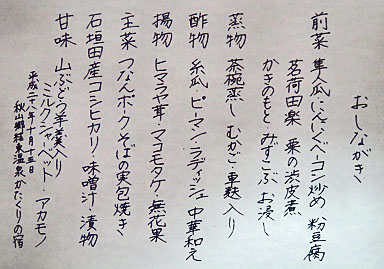 おしながき
前菜 隼人瓜にんにくベーコン炒め 粉豆腐
茗荷田楽 栗の渋皮煮
かきのもと みずこぶ お浸し
蒸物 茶碗蒸し むかご 車麩入り
酢物 糸瓜 ピーマン ラディッシュ 中華和え
揚物 ヒマラヤ茸 マコモタケ 無花果
主菜 つなんポーク そばの実包焼き
石垣田産コシヒカリ 味噌汁 漬物
甘味 山ぶどう羊羹入り
ミルクシャーベット・アカモノ
平成二十八年十月十三日
秋山郷結東温泉 かたくりの宿